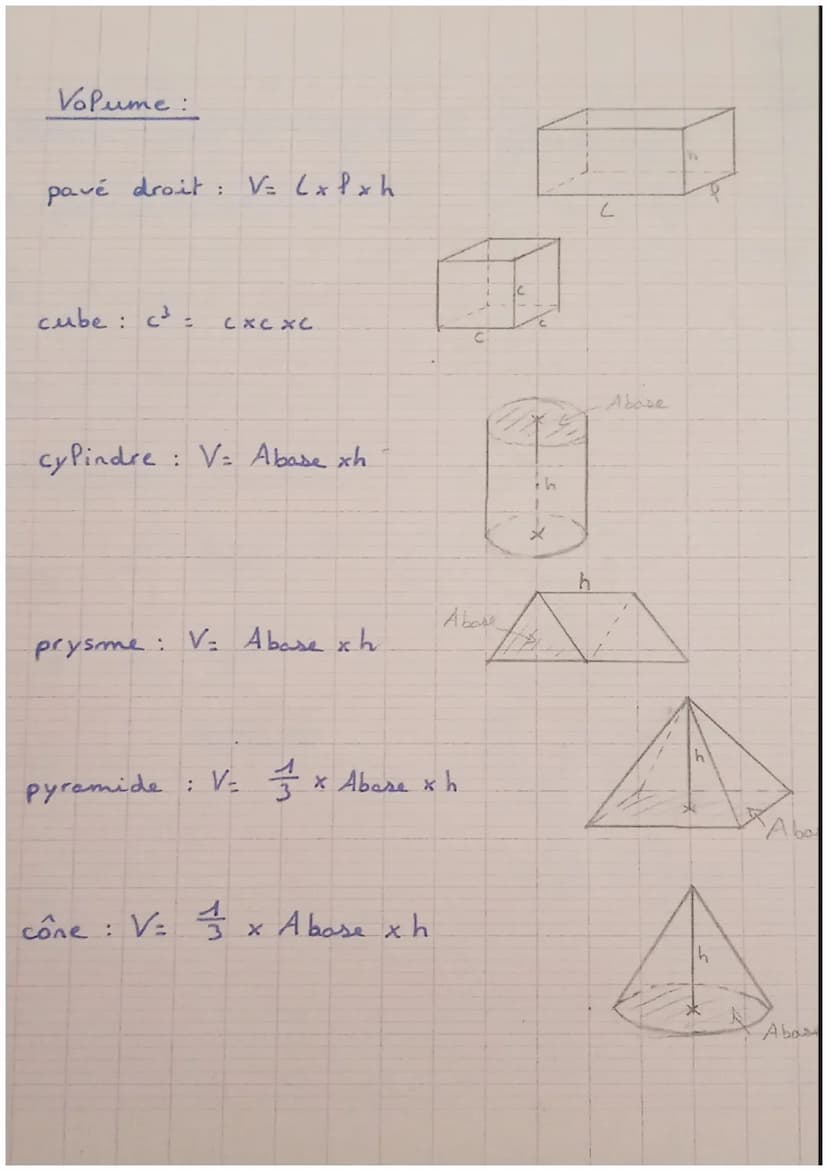 Volume :
pavé droit : V= L x l x h
h
l
L
cube : c³ = c x c x c
c
c
c
Abase
cylindre : V= Abase x h
h
h
Abase
prysme : V= Abase x h
h
pyramide : V= 1/3 x Abase x h
Aba
cône : V= 1/3 x Abase x h
h
Abas